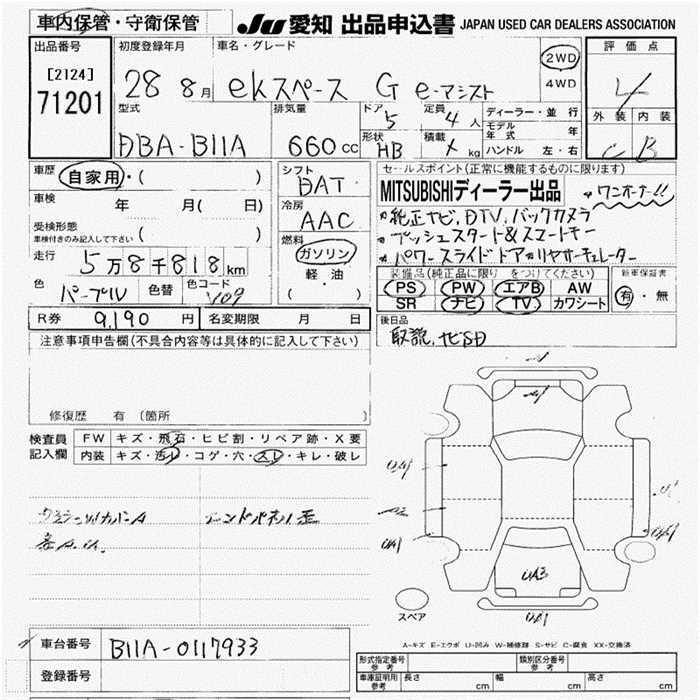 車内保管・守衛保管
JU 愛知 出品申込書 JAPAN USED CAR DEALERS ASSOCIATION
出品番号
[2124]
71201
初度登録年月
28 8月
車名・グレード
ekスペース G e-マシスト
2WD
4WD
評価点
4
外装 内装
C B
型式
DBA-B11A
排気量
660cc
ドア
5
定員
4人
形状
HB
積載
kg
ディーラー・並行
モデル年式 年
ハンドル 左・右
車歴
自家用・( )
車検
年 月( 日)
受検形態
車検付きのみ記入して下さい
( )
走行
5万8千818km
色
パープル
色替
色コード
シフト
DAT
冷房
AAC
燃料
ガソリン
軽・油
( )
セールスポイント(正常に機能するものに限ります)
MITSUBISHIディーラー出品
ワンオーナー!!
純正ナビ,DTV,バックカメラ
プッシュスタート&スマートキー
パワースライドドア,リヤサーキュレーター
装備品(純正品に限り をつけてください)
PS PW エアB AW
SR ナビ TV カワシート
新車保証書
有・無
後日品
取説,ナビSD
R券 9,190円
名変期限 月 日
注意事項申告欄(不具合内容等は具体的に記入して下さい)
修復歴 有(箇所
検査員
記入欄
FW キズ・飛石・ヒビ割・リペア跡・X要
内装 キズ・汚レ・コゲ・穴・スレ・キレ・破レ
スペア
A-キズ E-エクボ U-凹み W-補修跡 S-サビ C-腐食 XX-交換済
車台番号 B11A-0117933
登録番号
形式指定番号 参考
類別区分番号 参考
車庫証明用 参考
長さ cm 幅 cm 高さ cm